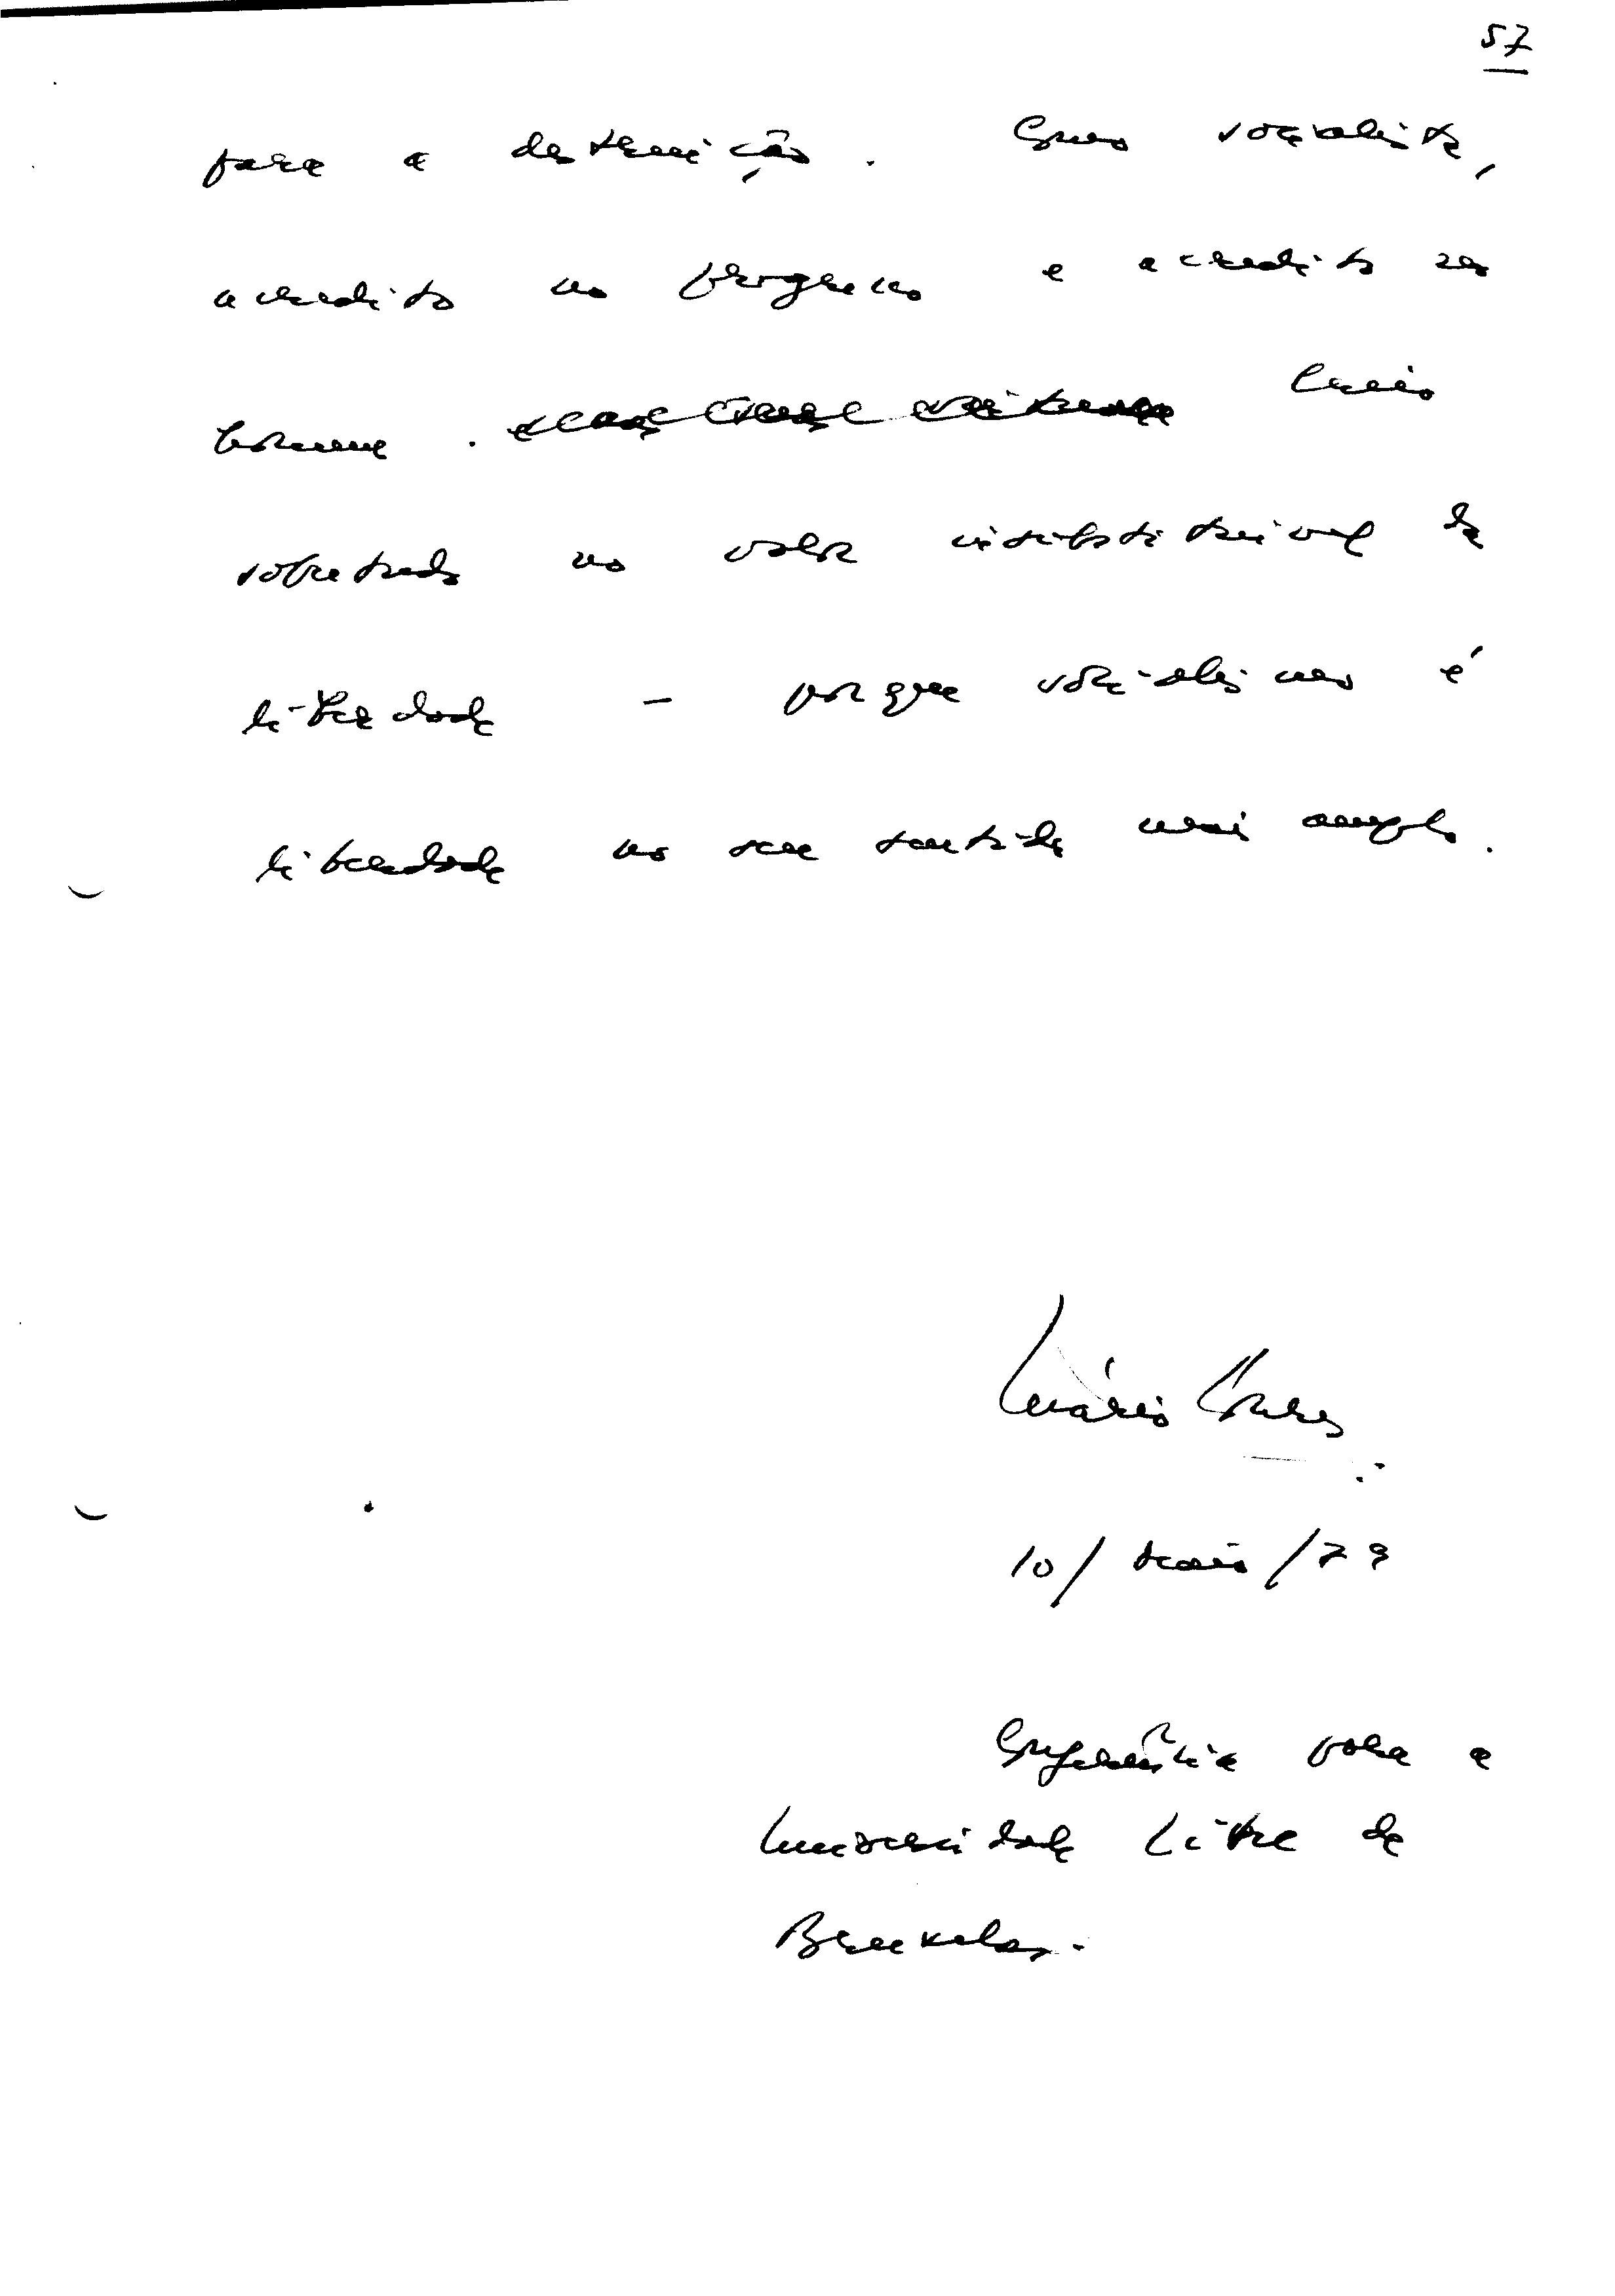 57
para a destruição. Como socialista,
acredito no progresso e acredito no
homem. Creio
sobretudo no valor insubstituível da
liberdade – porque socialismo é
liberdade no seu sentido mais amplo.
Mário Soares
10/Maio/79
Conferência para a
Universidade Livre de
Bruxelas.